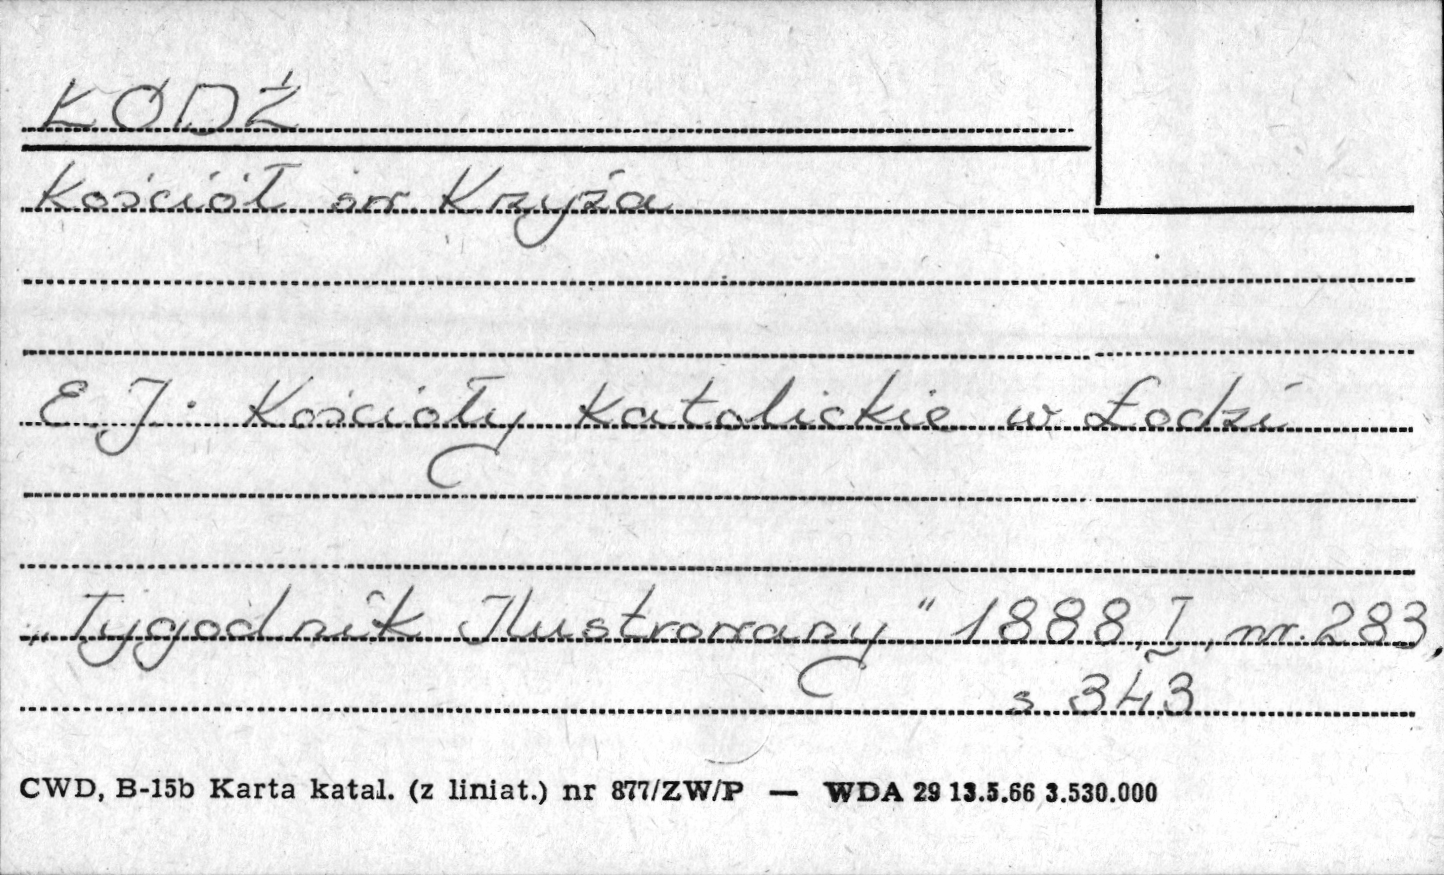 ŁÓDŹ
Kościół św. Krzyża
E.J. Kościoły katolickie w Łodzi
„Tygodnik Ilustrowany" 1888, I, nr. 283,
s 343
CWD, B-15b Karta katal. (z liniat.) nr 877/ZW/P — WDA 29 13.5.66 3.530.000